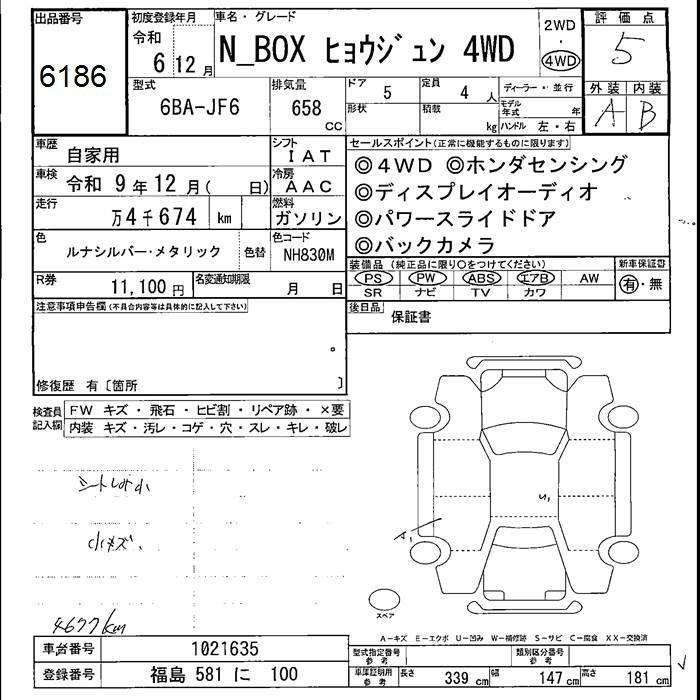 出品番号
6186
初度登録年月
令和
6 12月
車名・グレード
N_BOX ヒョウジュン 4WD
2WD
・
4WD
評価点
5
外装 内装
A B
型式
6BA-JF6
排気量
658
CC
ドア
5
定員
4 人
形状
積載
kg
ディーラー・並行
モデル年式 年
ハンドル 左・右
車歴
自家用
シフト
IAT
車検
令和 9年12月( 日)
冷房
AAC
走行
万4千674 km
燃料
ガソリン
色
ルナシルバー・メタリック
色替
色コード
NH830M
R券
11,100円
名変通知期限
月 日
セールスポイント(正常に機能するものに限ります)
◎4WD ◎ホンダセンシング
◎ディスプレイオーディオ
◎パワースライドドア
◎バックカメラ
装備品 (純正品に限り○をつけてください)
PS PW ABS エアB AW
SR ナビ TV カワ
新車保証書
有・無
後日品
保証書
注意事項申告欄(不具合内容等は具体的に記入して下さい)
修復歴 有〔箇所 〕
検査員記入欄
FW キズ・飛石・ヒビ割・リペア跡・×要
内装 キズ・汚レ・コゲ・穴・スレ・キレ・破レ
小キズ、
4677km
A1
U1
スペア
A-キズ E-エクボ U-凹み W-補修跡 S-サビ C-腐食 XX-交換済
車台番号
1021635
登録番号
福島 581 に 100
型式指定番号
参考
類別区分番号
参考
車庫証明用
参考
長さ 339 cm
幅 147 cm
高さ 181 cm